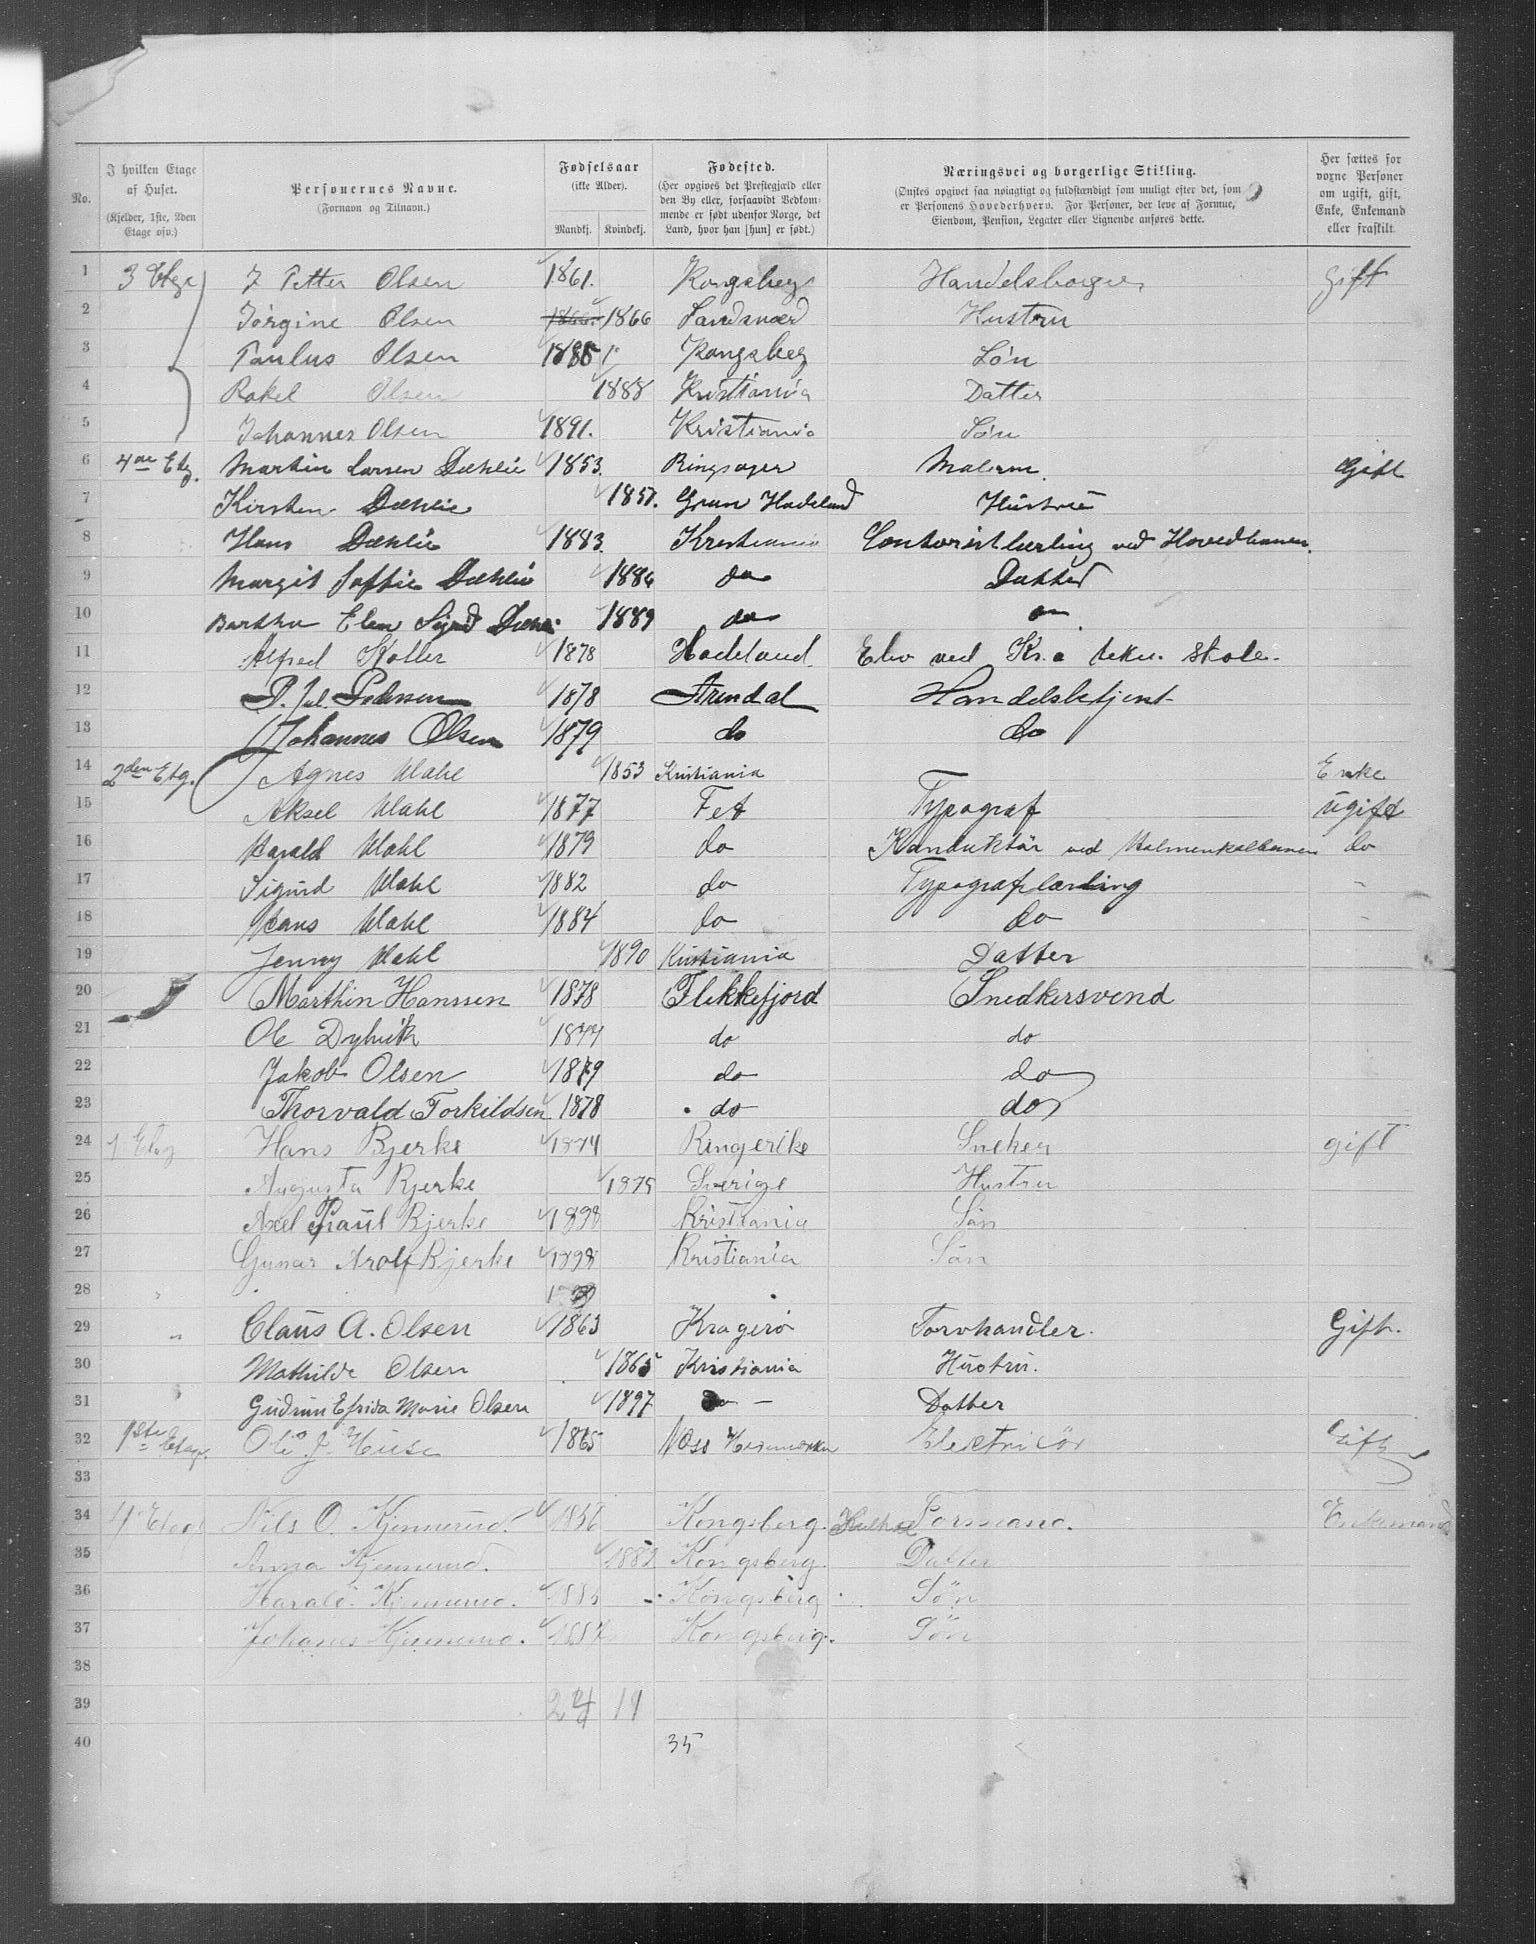 No.
I hvilken Etage af Huset. (Kjelder, 1ste, 2den Etage osv.)
Personernes Navne. (Fornavn og Tilnavn.)
Fødselsaar (ikke Alder). Mandkj. Kvindekj.
Fødested. (Her opgives det Prestegjæld eller den By eller, forsaavidt Vedkommende er født udenfor Norge, det Land, hvor han [hun] er født.)
Næringsvei og borgerlige Stilling. (Ønskes opgivet saa nøiagtigt og fuldstændigt som muligt efter det, som er Personens Hovederhverv. For Personer, der leve af Formue, Eiendom, Pension, Legater eller Lignende anføres dette.)
Her sættes for voxne Personer om ugift, gift, Enke, Enkemand eller fraskilt.
1 3 Etge J Petter Olsen 1861. Kongsberg Handelsborger Gift
2 Jørgine Olsen 1866 Sandsværd Hustru
3 Paulus Olsen 1885 Kongsberg Søn
4 Rakel Olsen 1888 Kristiania Datter
5 Johannes Olsen 1891. Kristiania Søn
6 4de Etg. Martin Larsen Dæhlie 1853. Ringsager Malerm. Gift
7 Kirsten Dæhlie 1857. Gran Hadeland Hustrue
8 Hans Dæhlie 1883. Kristiania Contoristlærling ved Hovedbanen.
9 Margit Soffie Dæhlie 1886 do Datter
10 Bertha Elen Dæhlie 1889 do do
11 Alfred Koller 1878 Hadeland Elev ved Kr.a tekn. Skole.
12 P. Jul. Pedersen 1878 Arendal Handelsbetjent
13 Johannes Olsen 1879 do do
14 2den Etg. Agnes Wahl 1853 Kristiania Enke
15 Aksel Wahl 1877 Fet Typograf Ugift
16 Harald Wahl 1879 do Konduktør ved Holmenkolbanen do
17 Sigurd Wahl 1882 do Typograflærling "
18 Hans Wahl 1884 do do "
19 Jenny Wahl 1890 Kristiania Datter
20 Marthin Hanssen 1878 Flekkefjord Snedkersvend
21 Ole Dybvik 1877 do do
22 Jakob Olsen 1879 do do
23 Thorvald Torkildsen 1878 do do
24 1 Etag Hans Bjerke 1874 Ringerike Sneker gift
25 Augusta Bjerke 1875 Sverige Hustru
26 Axel Paul Bjerke 1898 Kristiania Søn
27 Gunar Arolf Bjerke 1898 Kristiania Søn
28
29 " Claus A. Olsen 1863 Kragerø Torvhandler. Gift.
30 Mathilde Olsen 1865 Kristiania Hustru.
31 Gudrun Efrida Marie Olsen 1897 do – Datter
32 1ste Etage. Ole J. Huse 1865 Voss Electricør Gift
33
34 4 Etage Nils O. Kjennerud. 1856 Kongsberg. Formand. Enkemand
35 Anna Kjennerud. 1882 Kongsberg. Datter
36 Harald Kjennerud. 1885 Kongsberg Søn
37 Johanes Kjennerud. 1887 Kongsberg. Søn
38
39 24 11
40 35